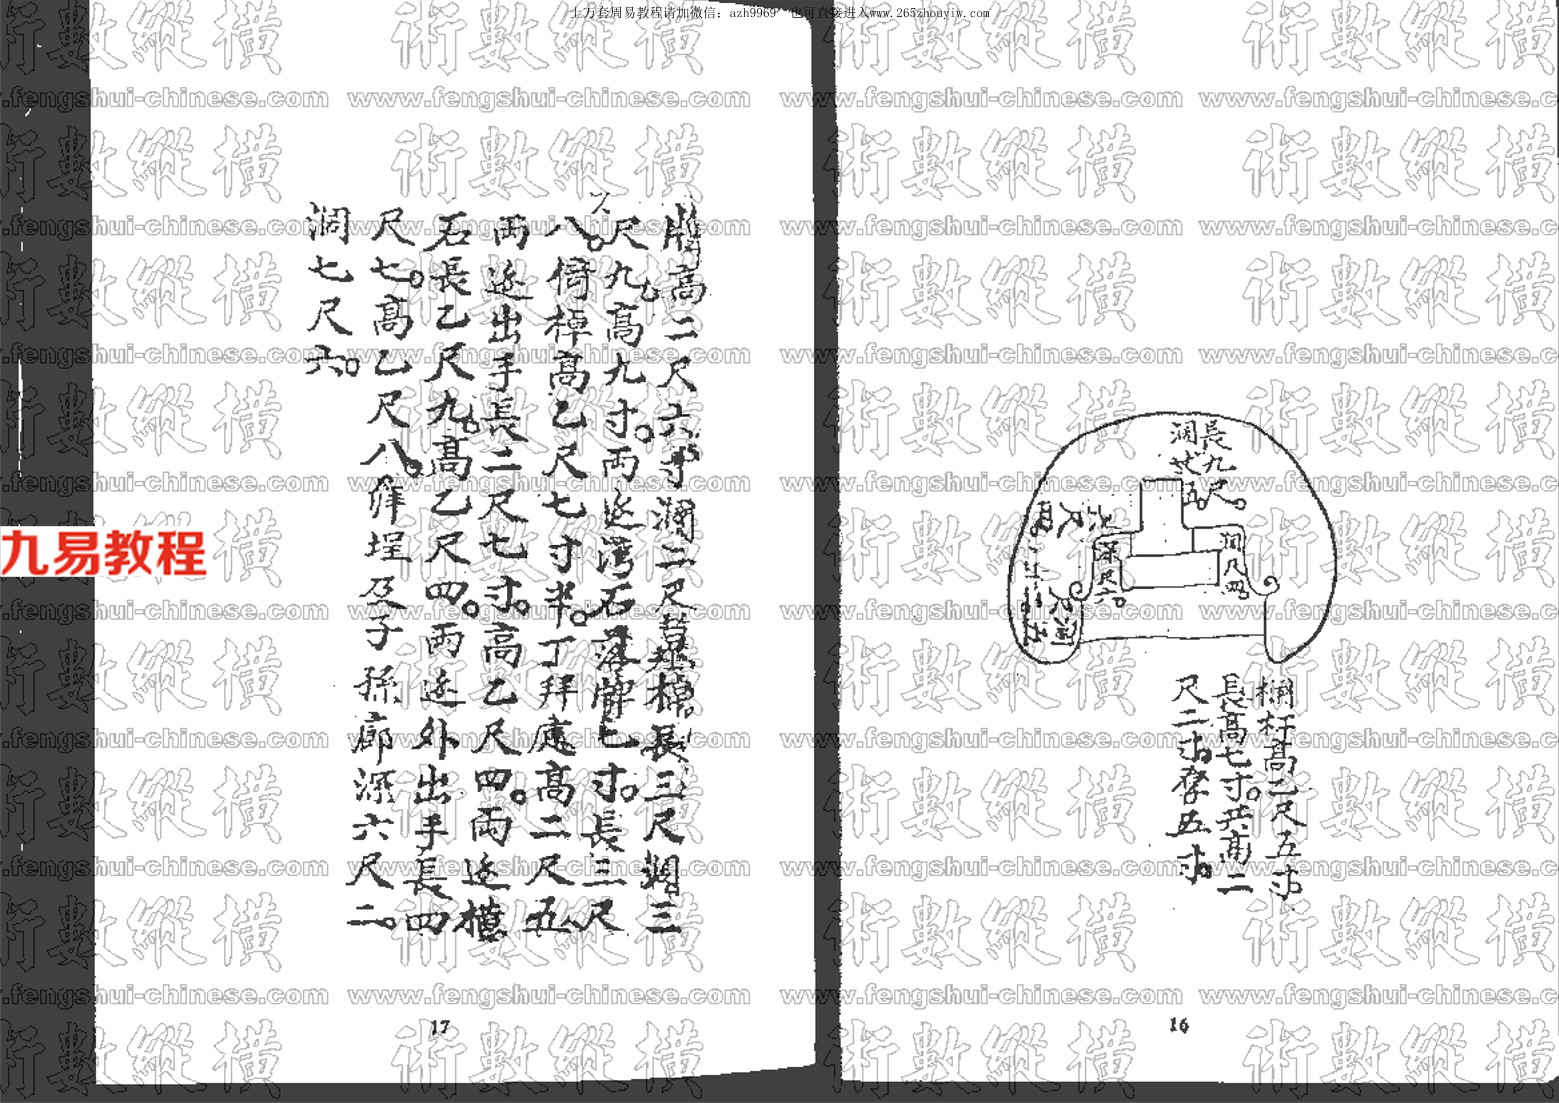 上万套周易教程请加微信：azh9969 也可直接进入www.265zhouyiw.com
長九尺。
濶
五。
濶八四。
深尺六。
欄杆高乙尺五寸
長高七寸。共高二
尺二寸。五寸。
16
牌高二尺六寸濶二尺墓棹長三尺濶三
尺九。高九寸。両边湾石落牌七寸。長三尺
八。倚棹高乙尺七寸半。丁拜高二尺五
両边出手長二尺七寸。高乙尺四。両边
石長乙尺九。高乙尺四。両边外出手長四
尺七。高乙尺八。埕及子孫廊深六尺二。
濶七尺六。
17
九易教程
術數縱橫
www.fengshui-chinese.com